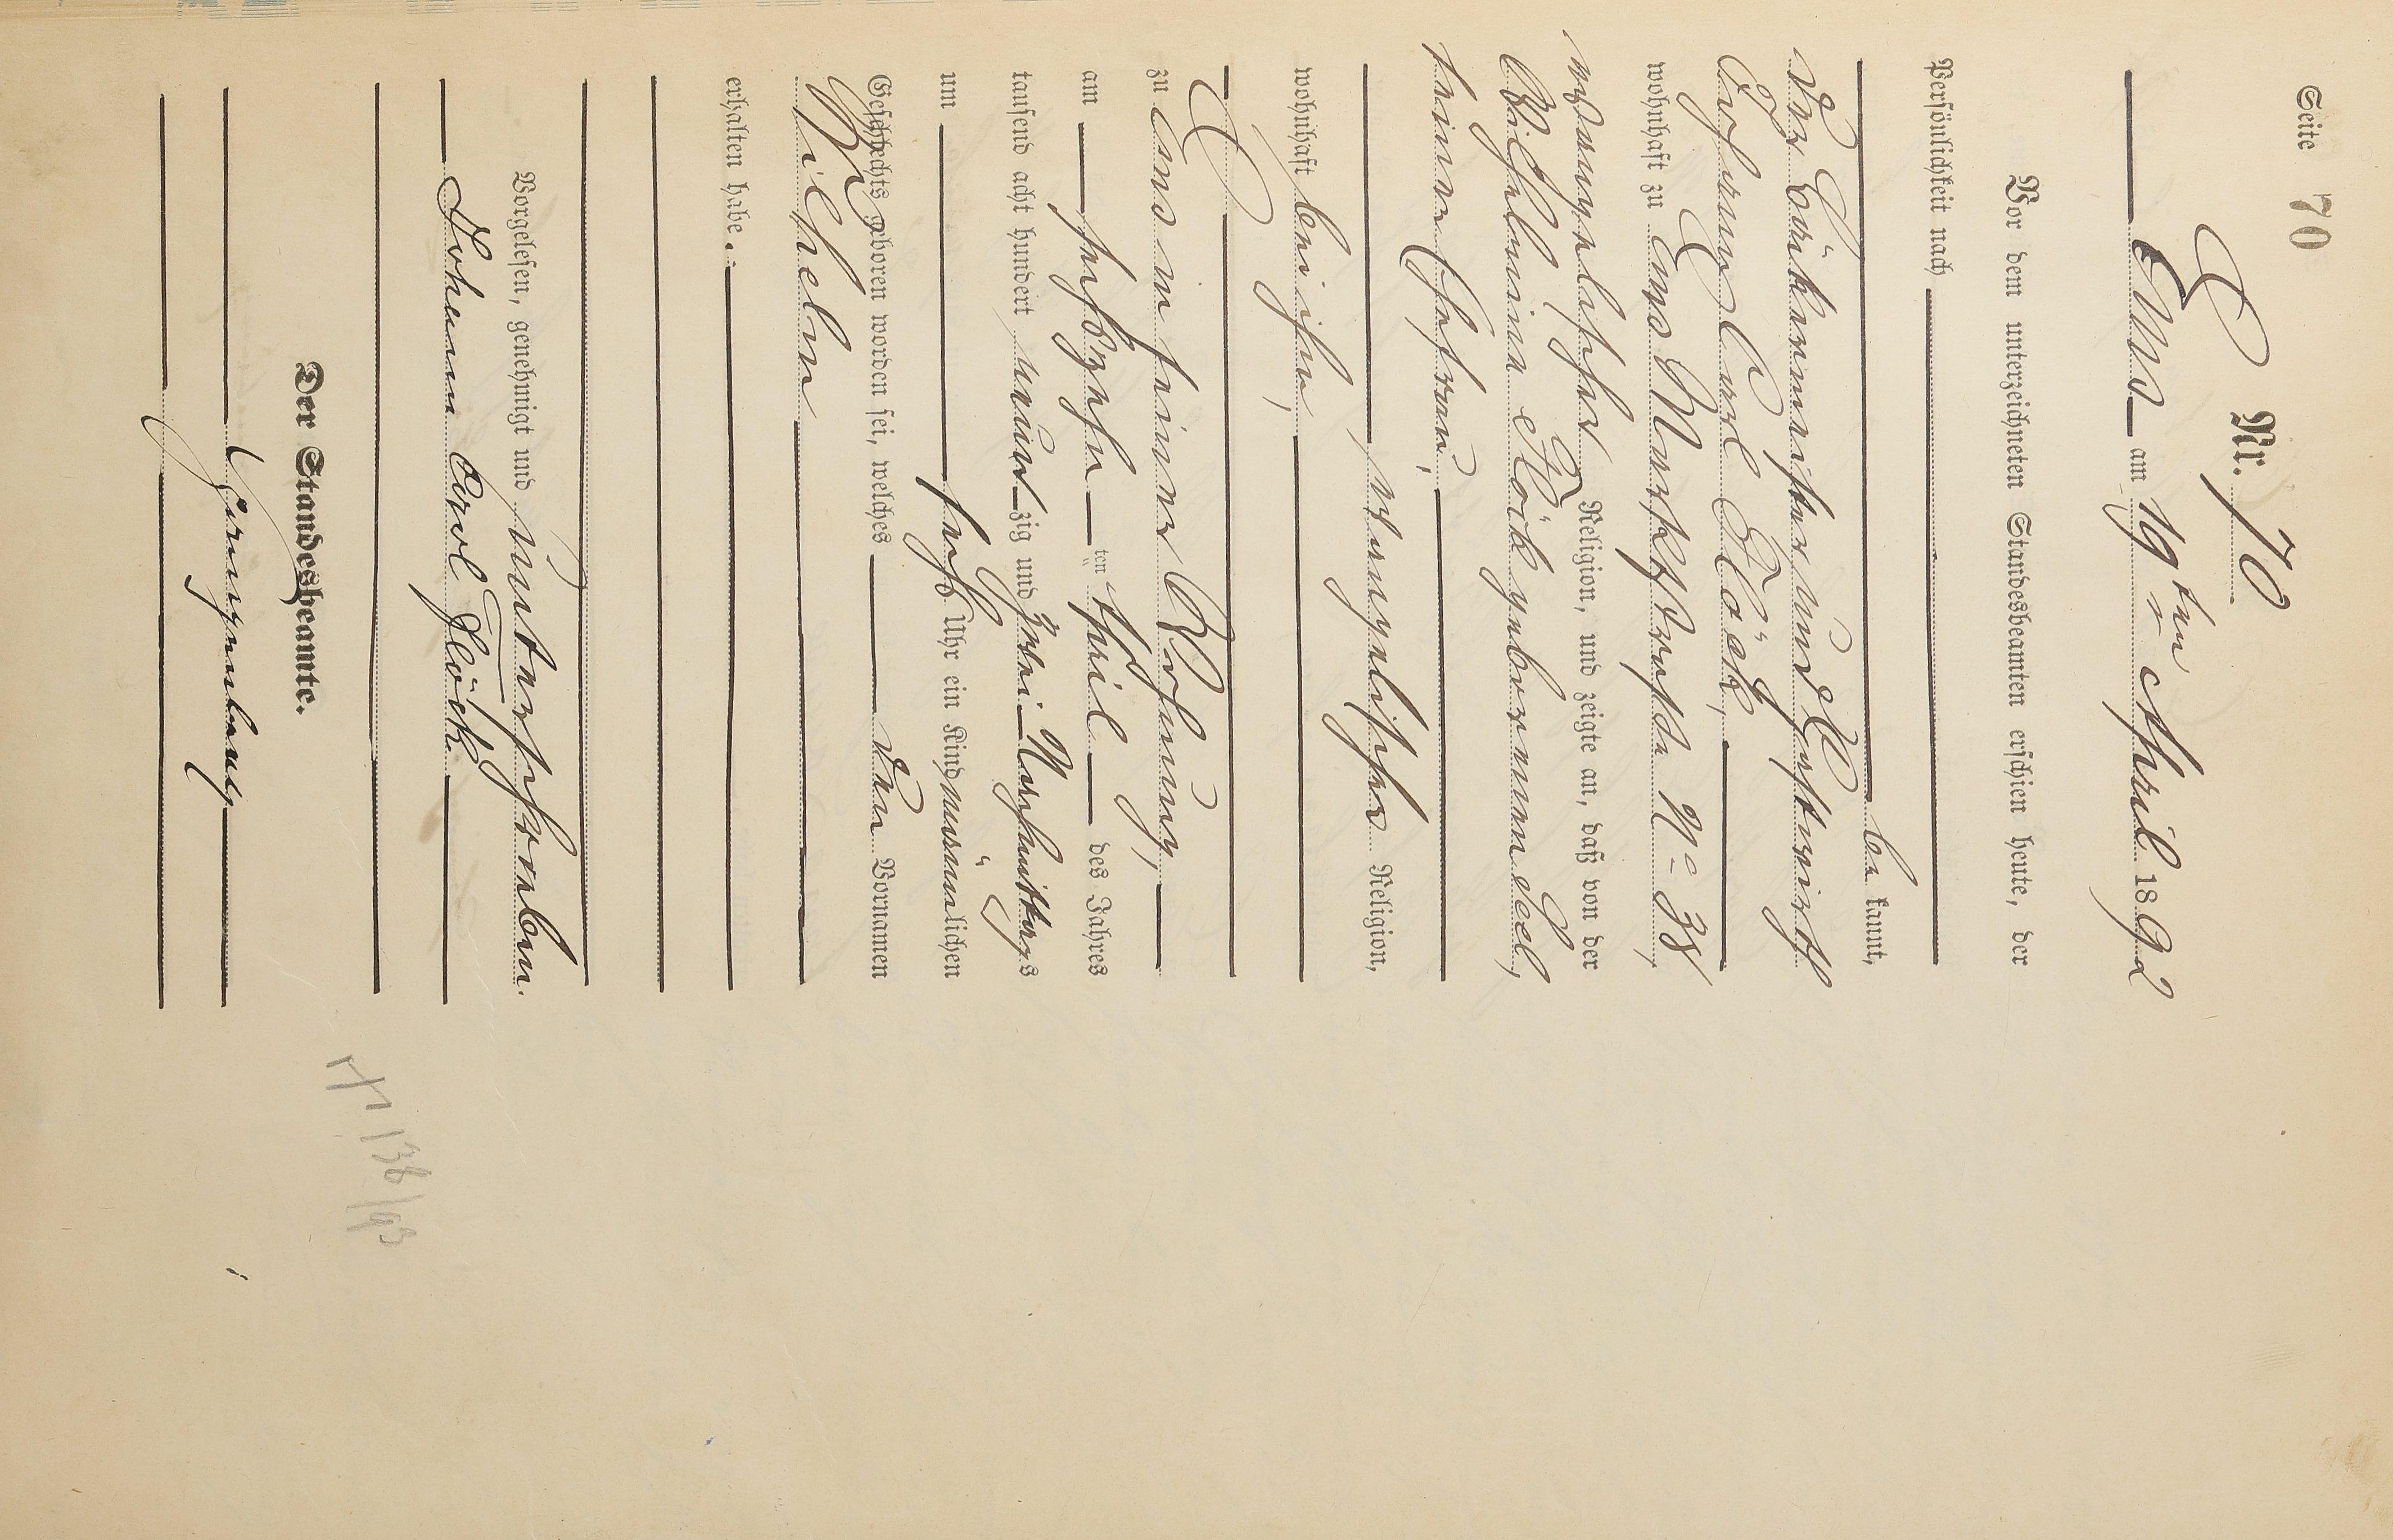 Seite 70
Nr. 70
Ems am 19ten April 1892
Vor dem unterzeichneten Standesbeamten erschien heute, der
Persönlichkeit nach
be kannt,
der Bäckermeister und Gastwirth
Johann Carl Flöck,
wohnhaft zu Ems Marktstraße No 38,
evangelischer Religion, und zeigte an, daß von der
Wilhelmine Flöck geborenen
seiner Ehefrau,
evangelischer Religion,
wohnhaft bei ihm,
zu Ems in seiner Wohnung,
am sechszehn ten April des Jahres
tausend acht hundert neun zig und zwei Nachmittags
um sechs Uhr ein Kind männlichen
Geschlechts geboren worden sei, welches den Vornamen
Wilhelm
erhalten habe.
Vorgelesen, genehmigt und unterschrieben.
Johann Carl Flöck
Der Standesbeamte.